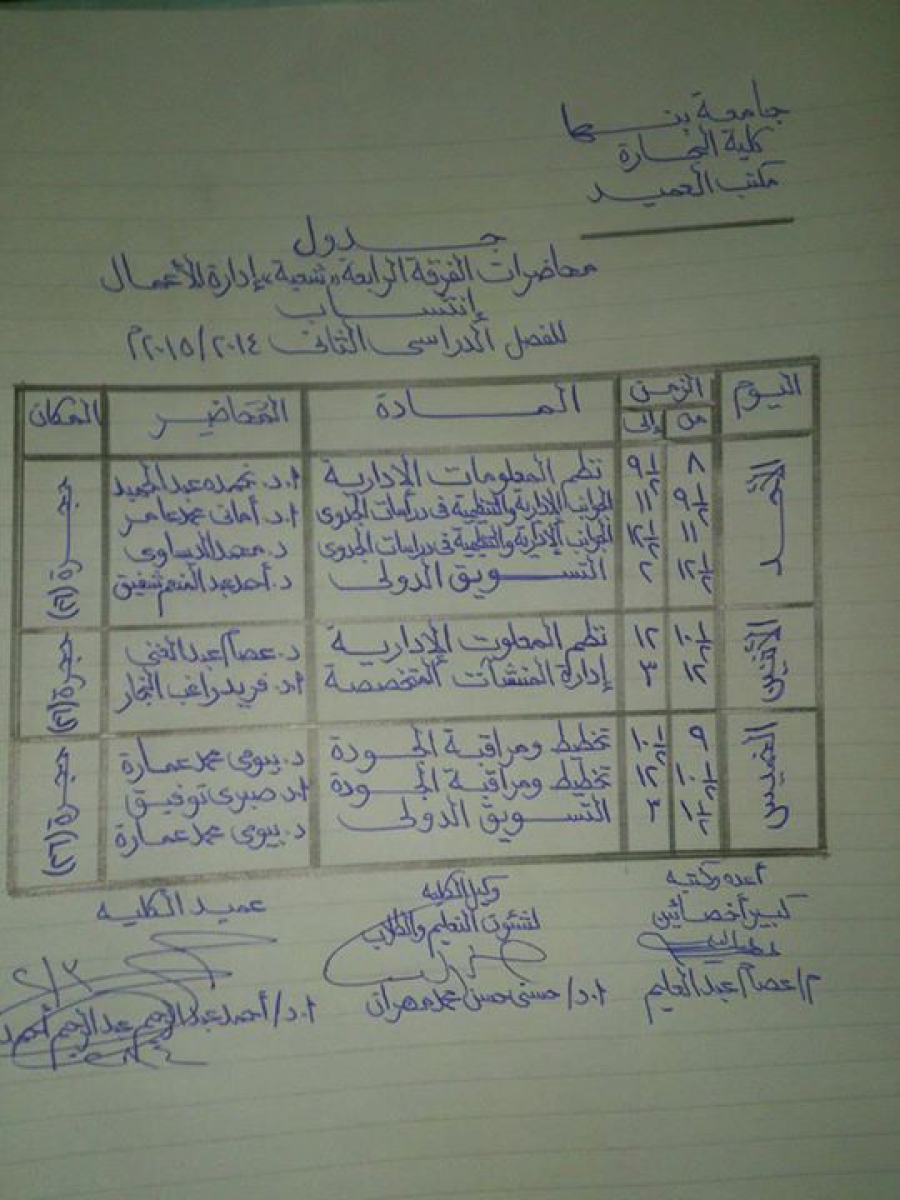 جامعة بنها
كلية التجارة
مكتب العميد
جدول
محاضرات الفرقة الرابعة "شعبة" إدارة الأعمال
إنتساب
للفصل الدراسى الثانى ٢٠١٤/٢٠١٥م
اليوم الزمن المادة المحاضر المكان
من إلى
الأحد
٨ ٩½ نظم المعلومات الإدارية ا.د. نجمده عبدالحميد حجرة (٢٦)
٩½ ١١ الجوانب الإدارية والتنظيمية فى دراسات الجدوى ا.د. أمانى محمد عامر
١١ ١٢½ الجوانب الإدارية والتنظيمية فى دراسات الجدوى د. محمد الديساوى
١٢½ ٢ التسويق الدولى د. أحمد عبدالمنعم شفيق
الأثنين
١٠½ ١٢ نظم المعلوت الإدارية د. عصا/عبدالغنى حجرة (٢٦)
١٢ ٣ إدارة المنشآت المتخصصة ا.د. فريد راغب النجار
الخميس
٩ ١٠½ تخطيط ومراقبة الجودة د. بيومى محمد عمارة حجرة (٢٦)
١٠½ ١٢ تخطيط ومراقبة الجودة ا.د صبرى توفيق
١½ ٣ التسويق الدولى د. بيومى محمد عمارة
أعده وكتبه وكيل الكليه عميد الكليه
كبير أخصائين لشئون التعليم والطلاب
٢/٣
م/عصا/عبدالعليم ا.د/حسنى حسن محمد مهران ا.د/أحمد عبدالرحيم عبدالرحيم أحمد